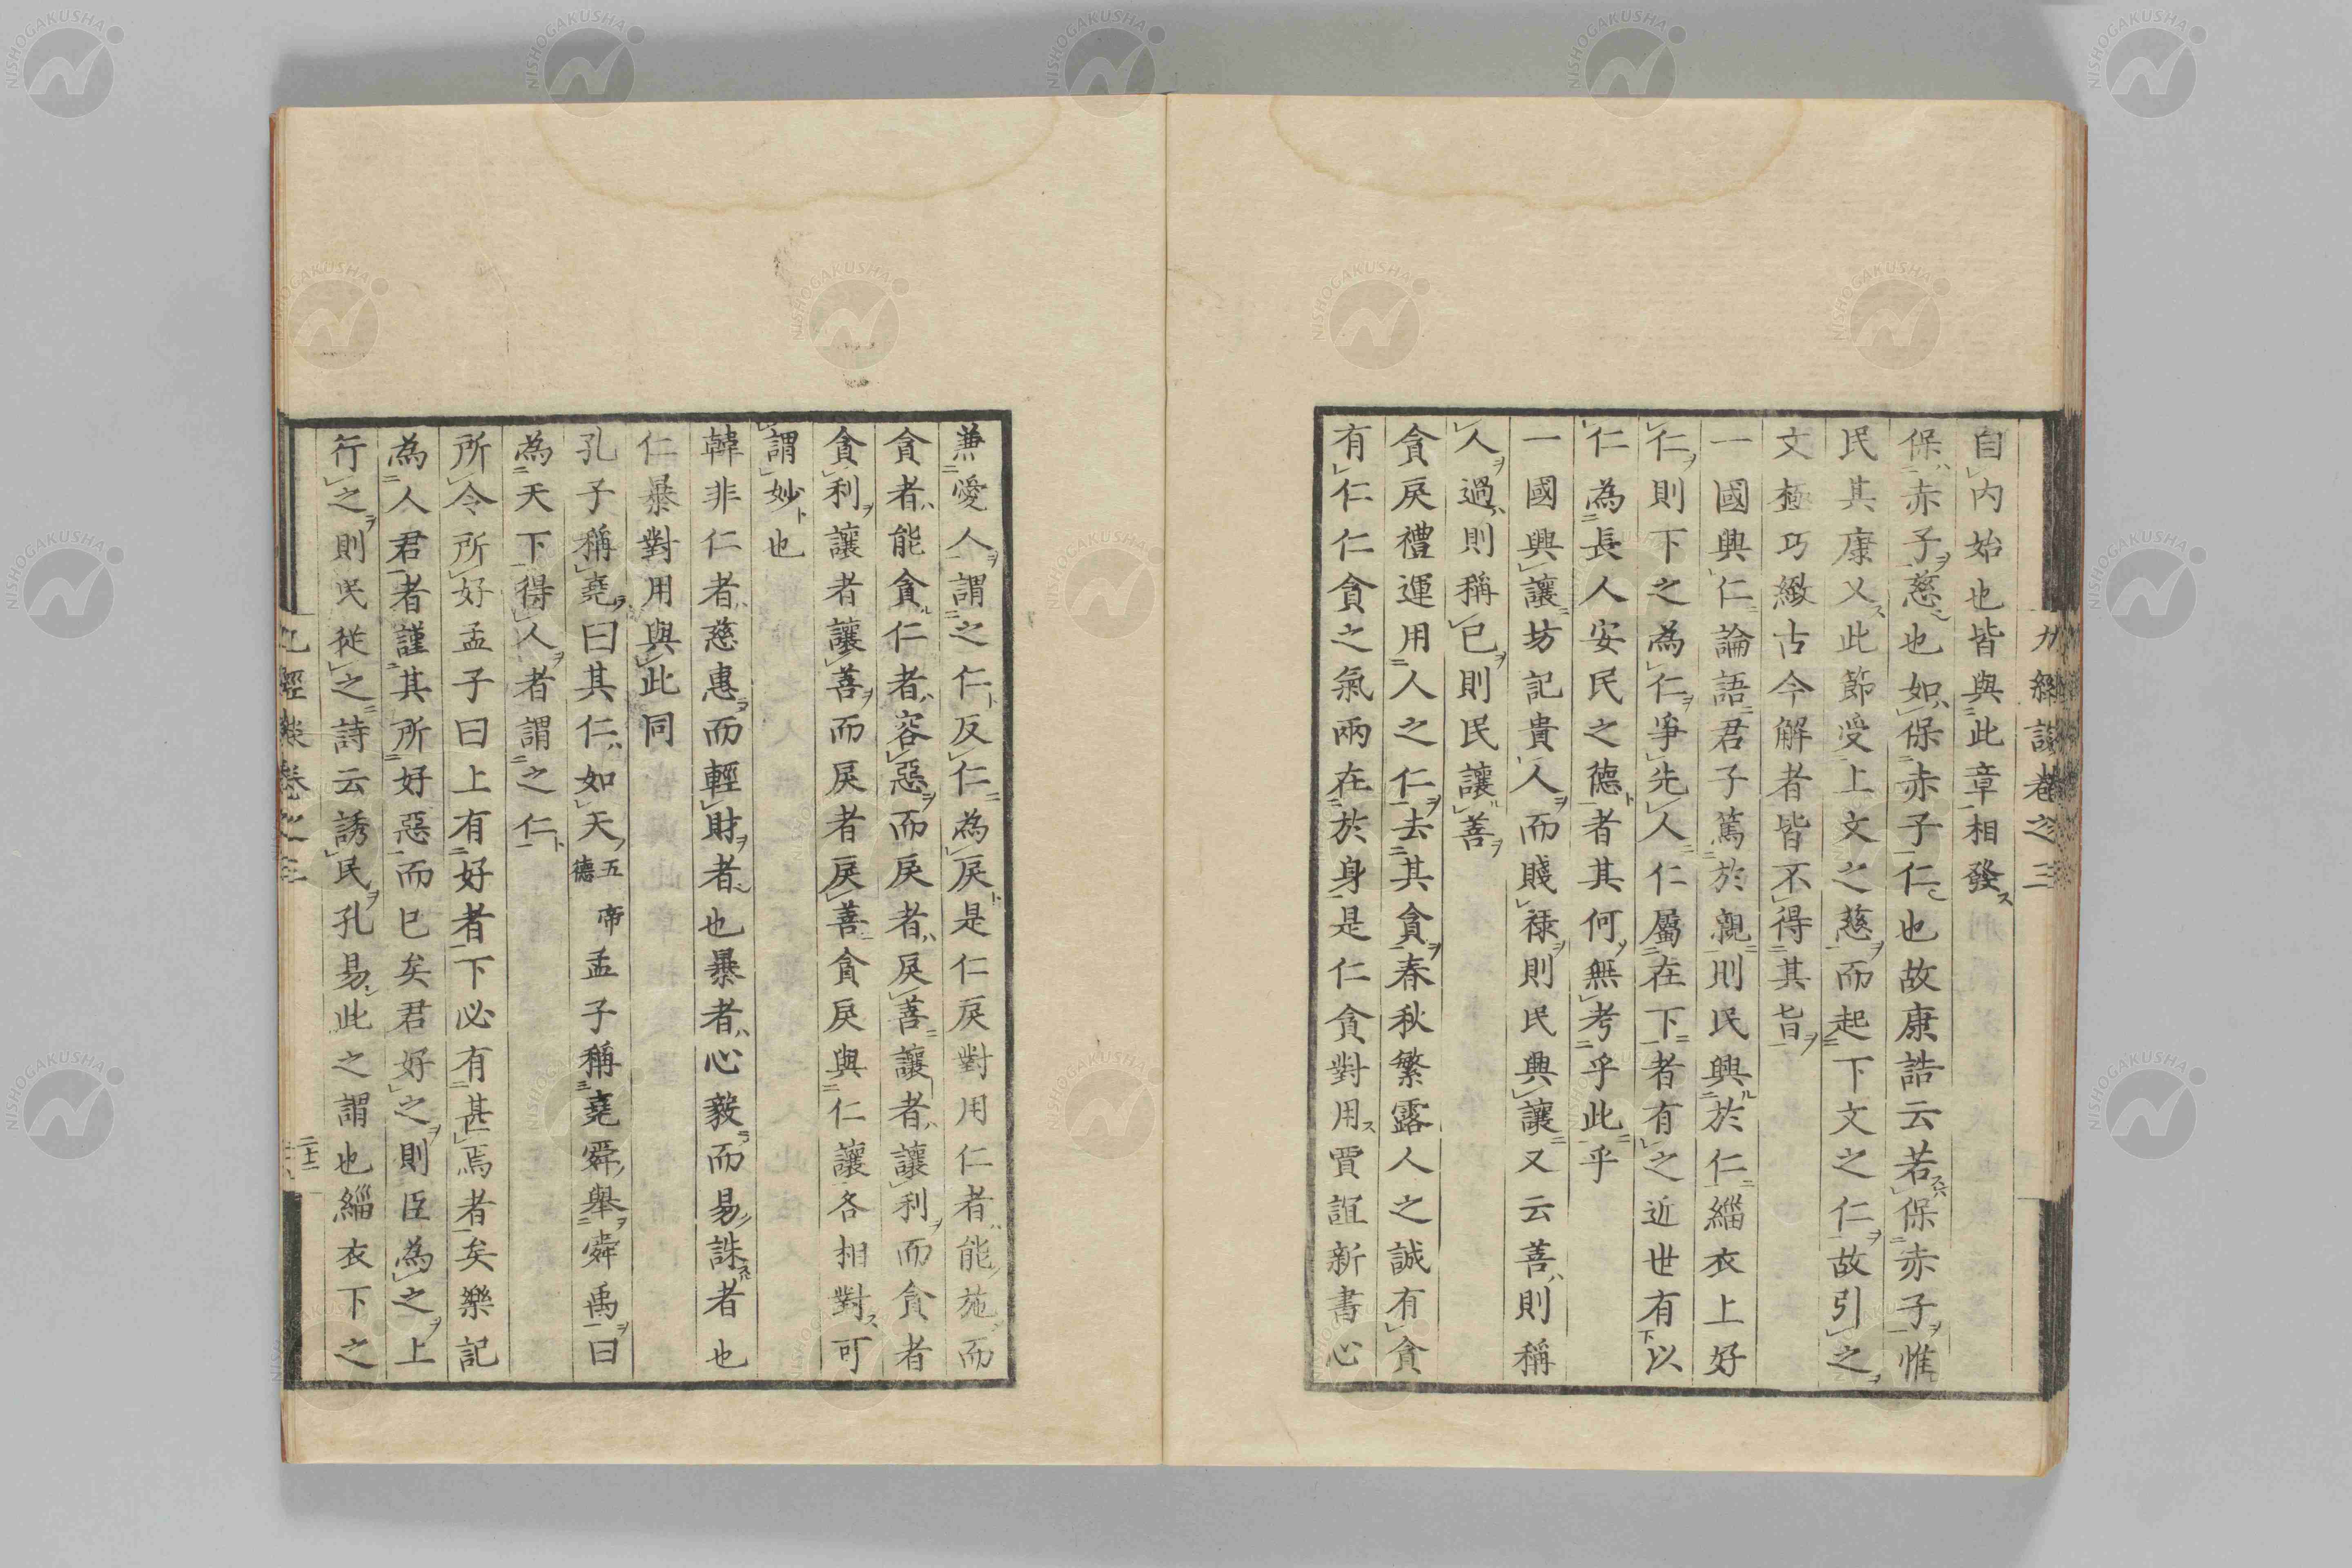 九經談卷之三
自内始也皆與此章相發
保赤子慈也如保赤子仁也故康誥云若保赤子惟
民其康乂此節受上文之慈而起下文之仁故引之
文極巧緻古今解者皆不得其旨
一國興仁論語君子篤於親則民興於仁緇衣上好
仁則下之為仁爭先人仁屬在下者有之近世有以
仁為長人安民之德者其何無考乎此乎
一國興讓坊記貴人而賤祿則民興讓又云善則稱
人過則稱已則民讓善
貪戾禮運用人之仁去其貪春秋繁露人之誠有貪
有仁仁貪之氣兩在於身是仁貪對用賈誼新書心
兼愛人謂之仁反仁為戾是仁戾對用仁者能施而
貪者能貪仁者容惡而戾者戾善讓者讓利而貪者
貪利讓者讓善而戾者戾善貪戾與仁讓各相對可
謂妙也
韓非仁者慈惠而輕財者也暴者心毅而易誅者也
仁暴對用與此同
孔子稱堯曰其仁如天五帝德孟子稱堯舜舉舜禹曰
為天下得人者謂之仁
所令所好孟子曰上有好者下必有甚焉者矣樂記
為人君者謹其所好惡而已矣君好之則臣為之上
行之則民從之詩云誘民孔易此之謂也緇衣下之
九經談卷之三
二十二